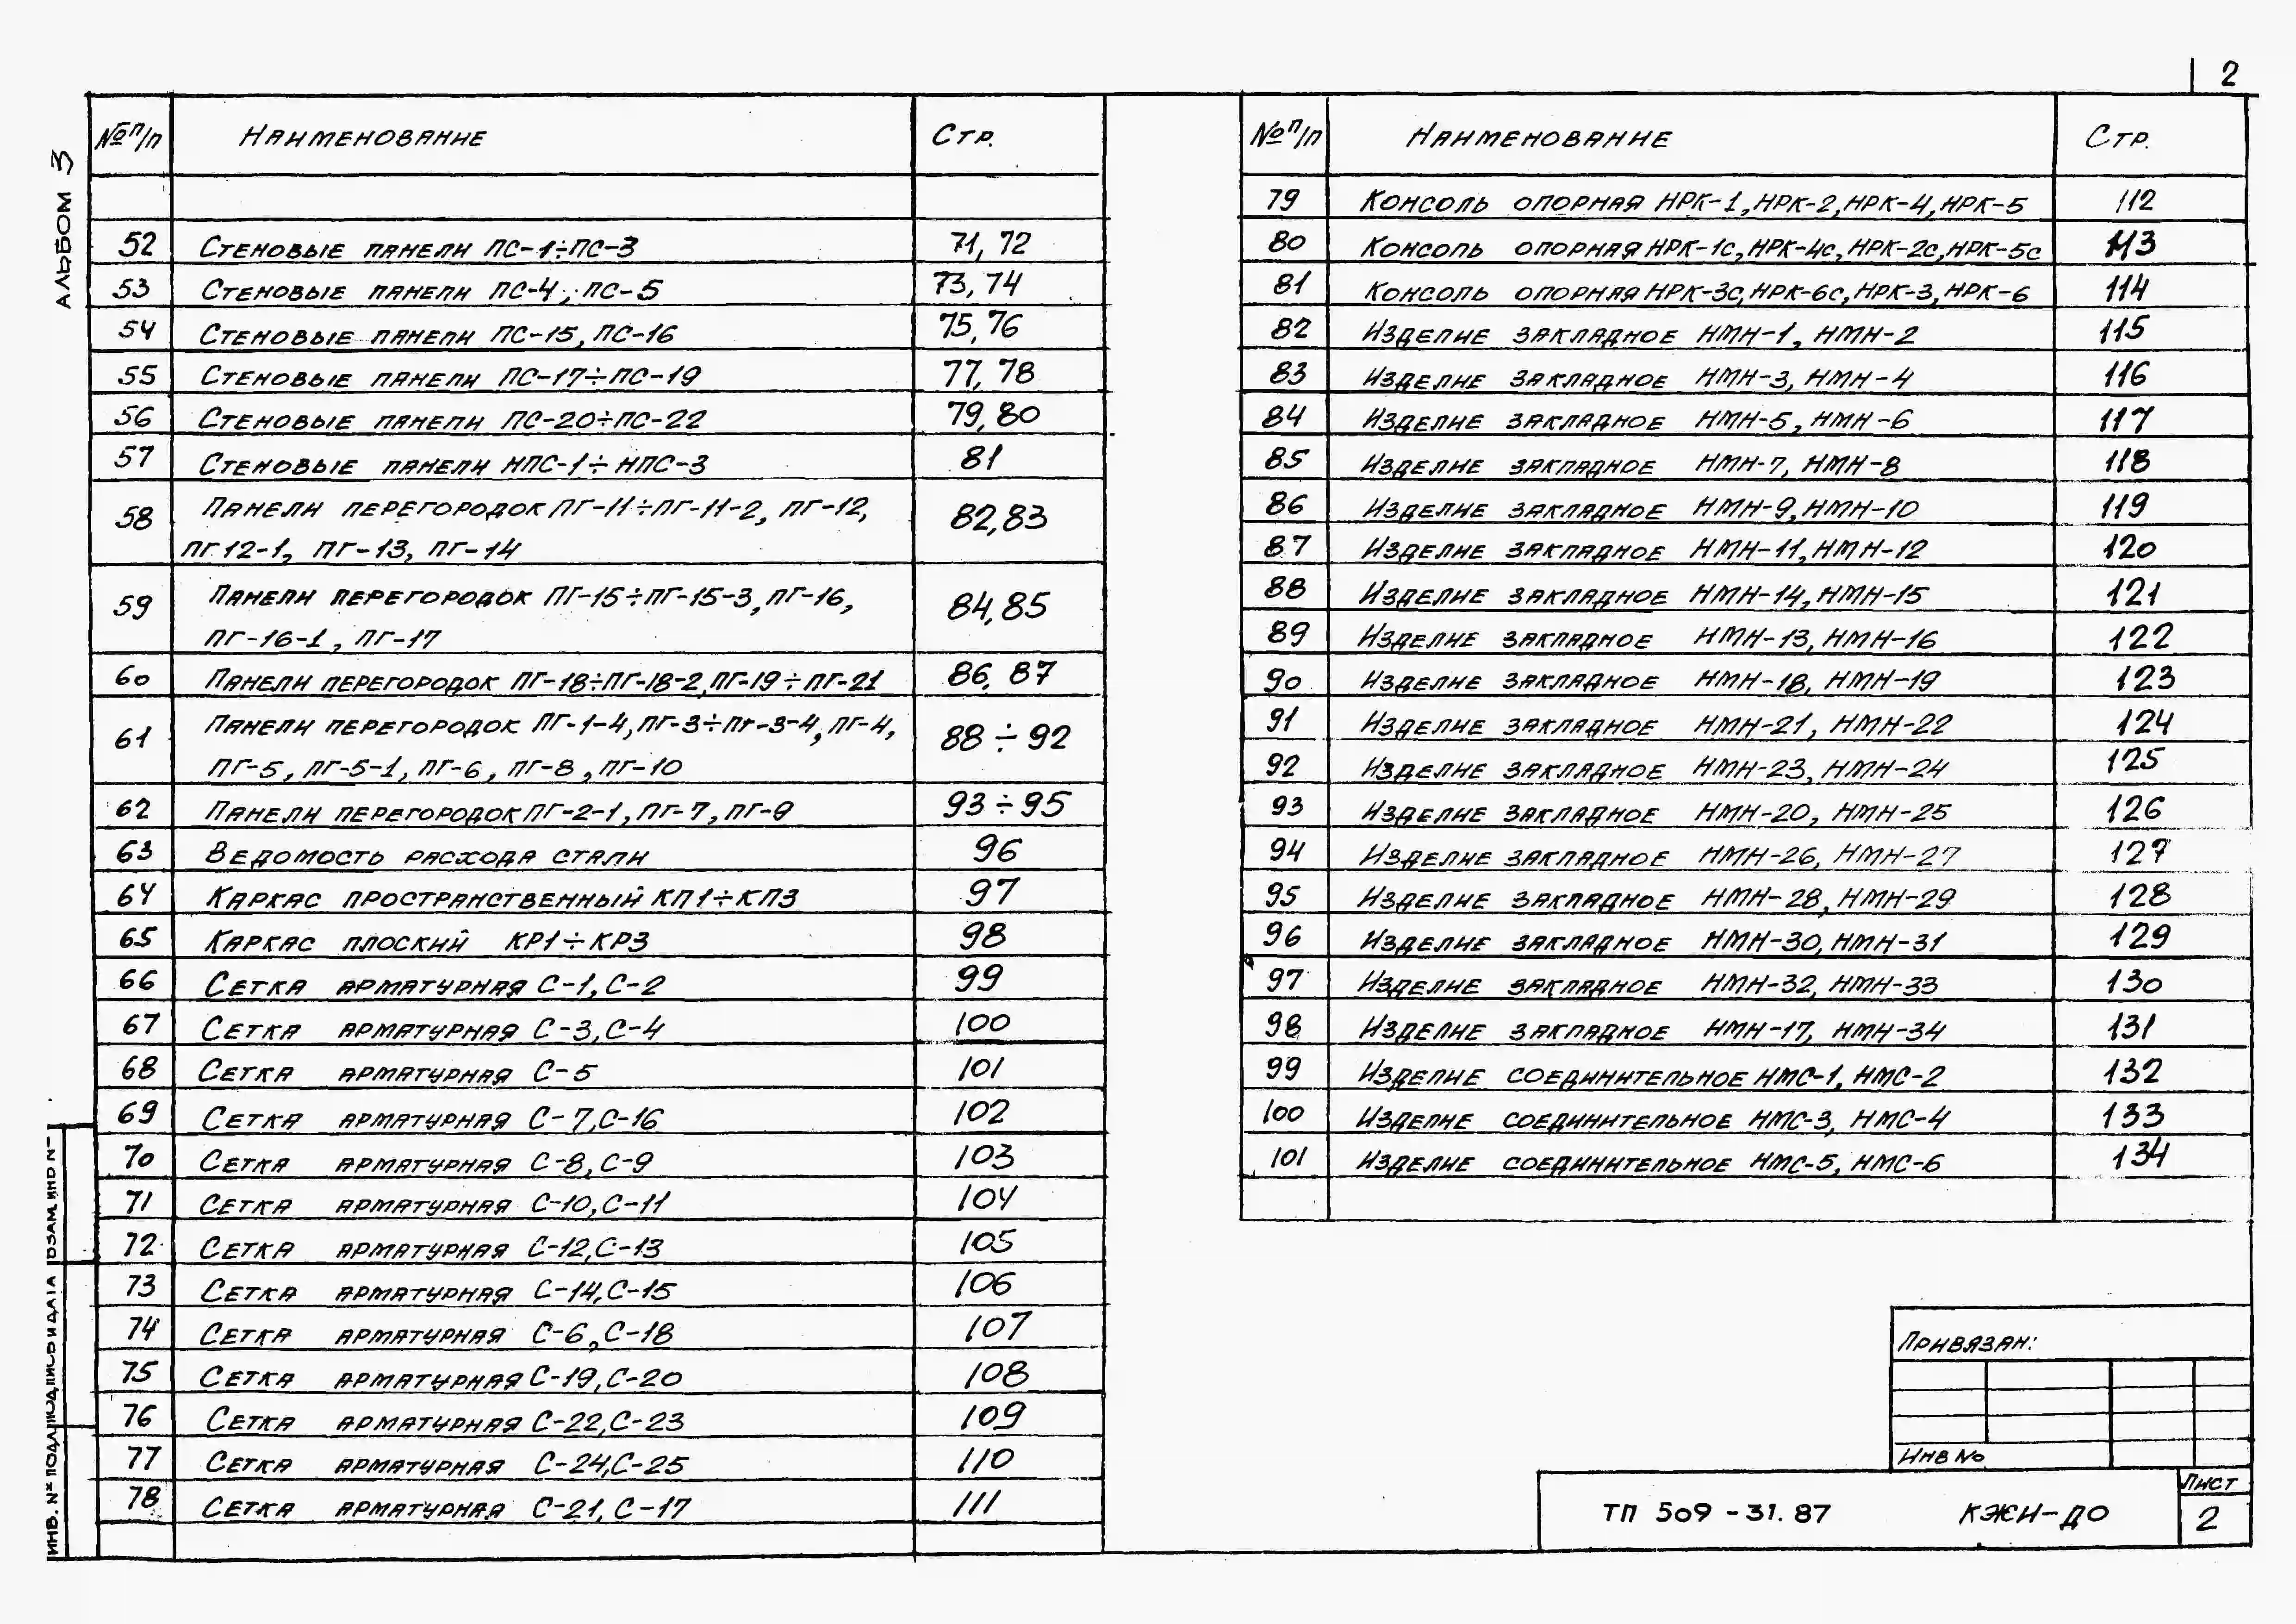 2
АЛЬБОМ 3
№ п/п Наименование Стр.
52 Стеновые панели ПС-1÷ПС-3 71, 72
53 Стеновые панели ПС-4, ПС-5 73, 74
54 Стеновые панели ПС-15, ПС-16 75, 76
55 Стеновые панели ПС-17÷ПС-19 77, 78
56 Стеновые панели ПС-20÷ПС-22 79, 80
57 Стеновые панели НПС-1÷НПС-3 81
58 Панели перегородок ПГ-11÷ПГ-11-2, ПГ-12, 82,83
ПГ 12-1, ПГ-13, ПГ-14
59 Панели перегородок ПГ-15÷ПГ-15-3, ПГ-16, 84,85
ПГ-16-1, ПГ-17
60 Панели перегородок ПГ-18÷ПГ-18-2, ПГ-19÷ПГ-21 86, 87
61 Панели перегородок ПГ-1-4, ПГ-3÷ПГ-3-4, ПГ-4, 88÷92
ПГ-5, ПГ-5-1, ПГ-6, ПГ-8, ПГ-10
62 Панели перегородок ПГ-2-1, ПГ-7, ПГ-9 93÷95
63 Ведомость расхода стали 96
64 Каркас пространственный КП1÷КП3 97
65 Каркас плоский КР1÷КР3 98
66 Сетка арматурная С-1, С-2 99
67 Сетка арматурная С-3, С-4 100
68 Сетка арматурная С-5 101
69 Сетка арматурная С-7, С-16 102
70 Сетка арматурная С-8, С-9 103
71 Сетка арматурная С-10, С-11 104
72 Сетка арматурная С-12, С-13 105
73 Сетка арматурная С-14, С-15 106
74 Сетка арматурная С-6, С-18 107
75 Сетка арматурная С-19, С-20 108
76 Сетка арматурная С-22, С-23 109
77 Сетка арматурная С-24, С-25 110
78 Сетка арматурная С-21, С-17 111
№ п/п Наименование Стр.
79 Консоль опорная НРК-1, НРК-2, НРК-4, НРК-5 112
80 Консоль опорная НРК-1с, НРК-4с, НРК-2с, НРК-5с 113
81 Консоль опорная НРК-3с, НРК-6с, НРК-3, НРК-6 114
82 Изделие закладное НМН-1, НМН-2 115
83 Изделие закладное НМН-3, НМН-4 116
84 Изделие закладное НМН-5, НМН-6 117
85 Изделие закладное НМН-7, НМН-8 118
86 Изделие закладное НМН-9, НМН-10 119
87 Изделие закладное НМН-11, НМН-12 120
88 Изделие закладное НМН-14, НМН-15 121
89 Изделие закладное НМН-13, НМН-16 122
90 Изделие закладное НМН-18, НМН-19 123
91 Изделие закладное НМН-21, НМН-22 124
92 Изделие закладное НМН-23, НМН-24 125
93 Изделие закладное НМН-20, НМН-25 126
94 Изделие закладное НМН-26, НМН-27 127
95 Изделие закладное НМН-28, НМН-29 128
96 Изделие закладное НМН-30, НМН-31 129
97 Изделие закладное НМН-32, НМН-33 130
98 Изделие закладное НМН-17, НМН-34 131
99 Изделие соединительное НМС-1, НМС-2 132
100 Изделие соединительное НМС-3, НМС-4 133
101 Изделие соединительное НМС-5, НМС-6 134
Привязан:
Инв №
ТП 509-31.87 КЖИ-ДО
Лист
2
ИНВ. № ПОДЛ ПОДПИСЬ И ДАТА ВЗАМ. ИНВ №